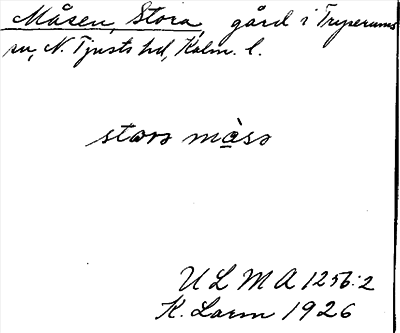 Måsen, Stora, gård i Tryserums
sn, N. Tjusts hd, Kalm. l.
stora mås
U L M A 1256:2
K. Larm 1926